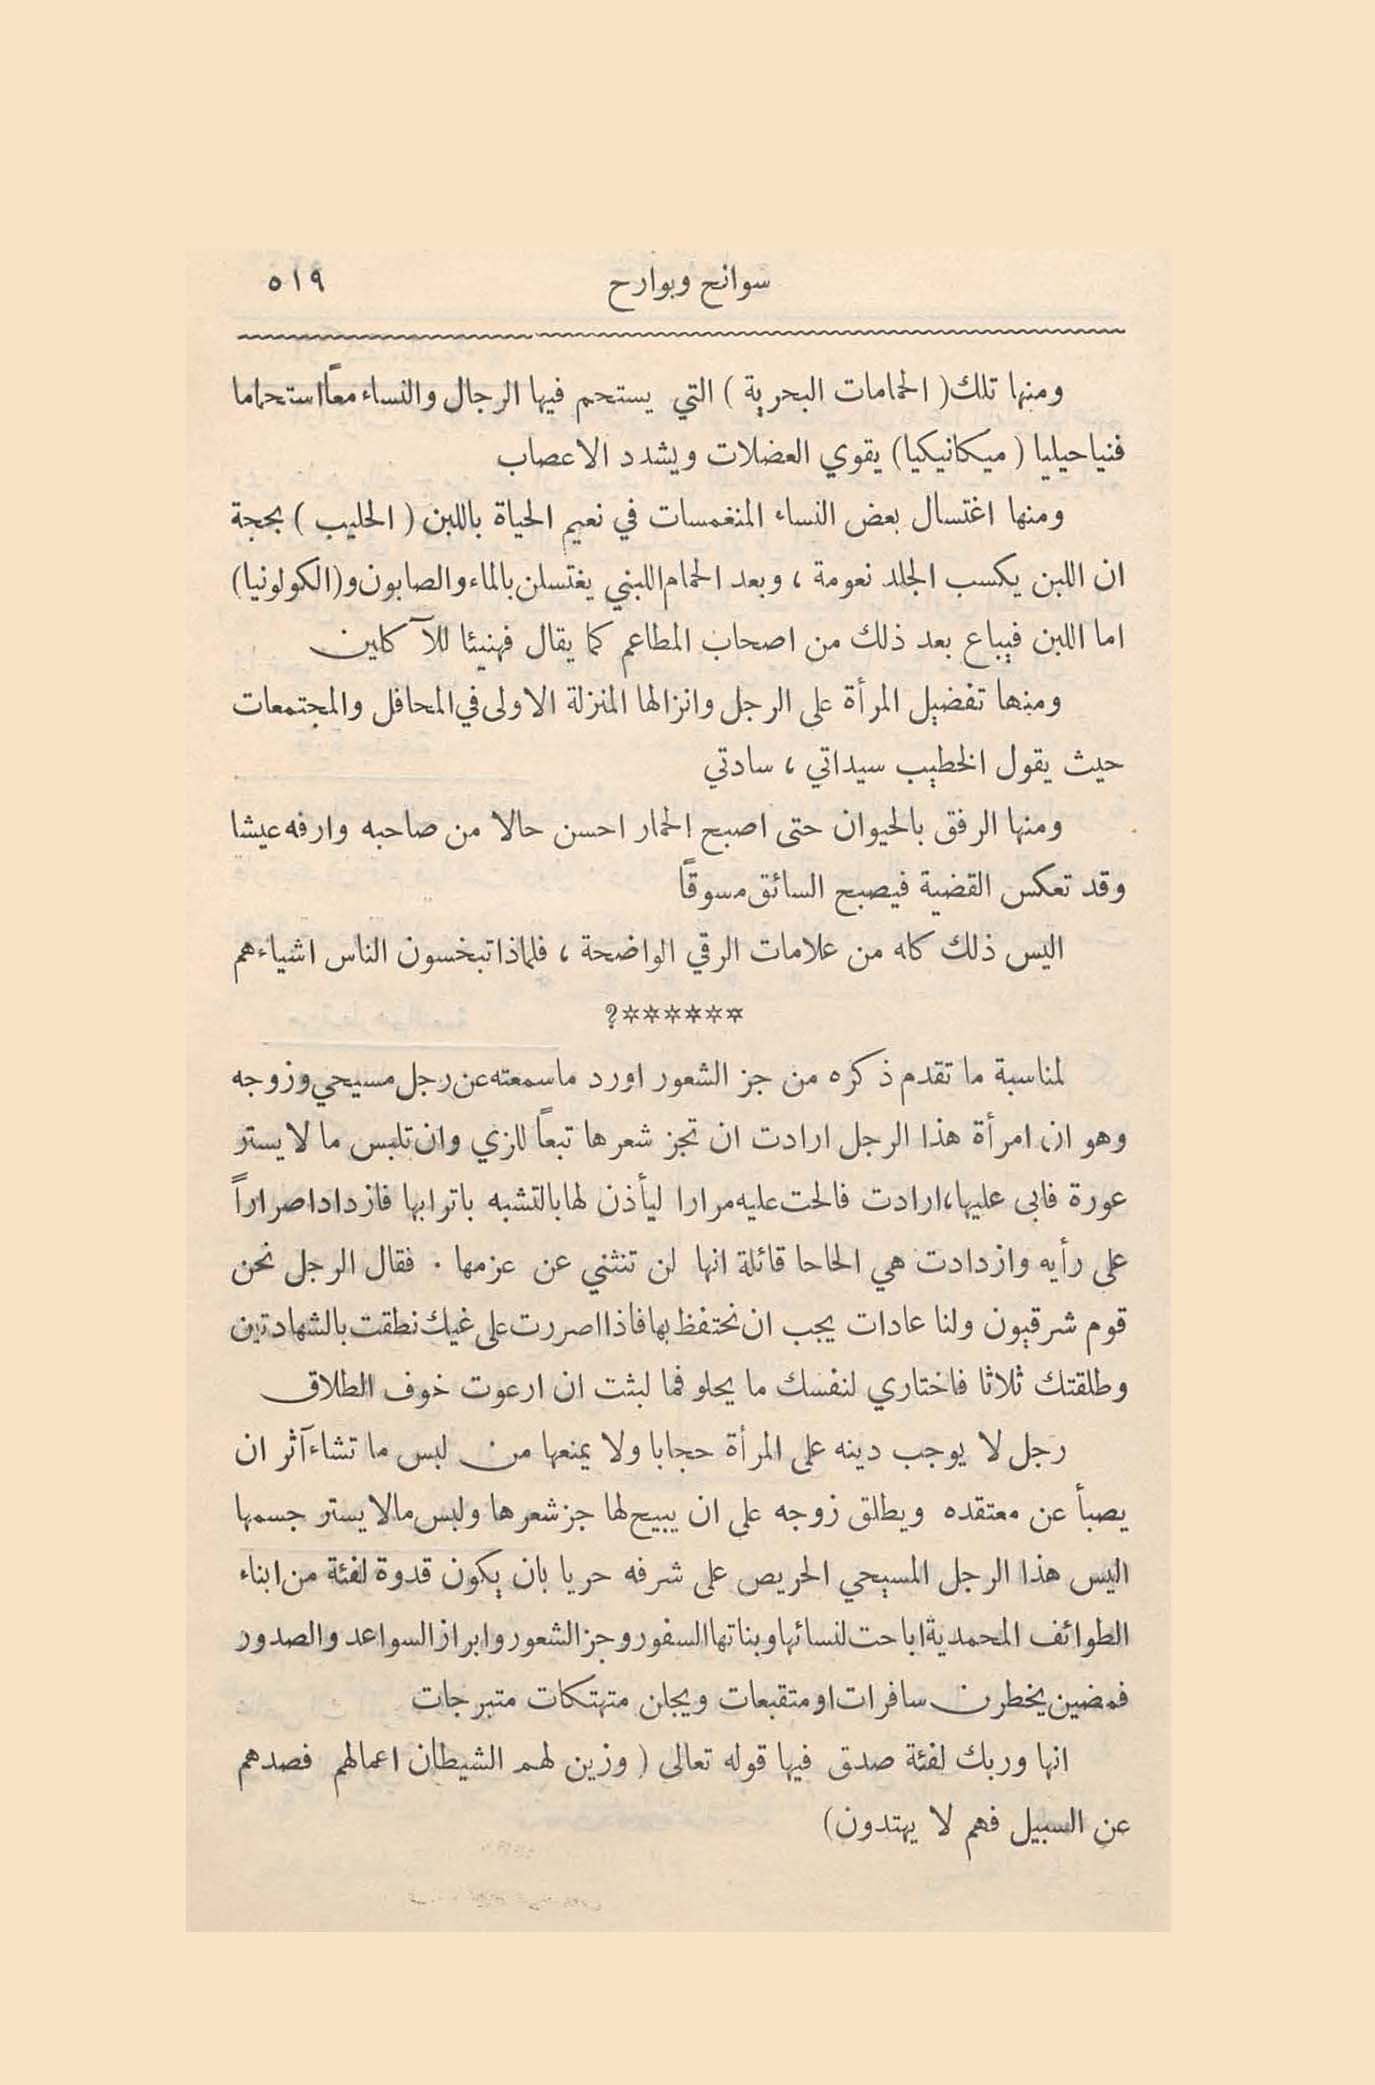 سوانح وبوارح ٥١٩
ومنها تلك ( الحمامات البحرية ) التي يستحم فيها الرجال والنساء معاً استحماما
فنيا حيليا ( ميكانيكيا ) يقوي العضلات ويشدد الاعصاب
ومنها اغتسال بعض النساء المنغمسات في نعيم الحياة باللبن ( الحليب ) بحجة
ان اللبن يكسب الجلد نعومة ، وبعد الحمام اللبني يغتسلن بالماء والصابون و(الكولونيا)
اما اللبن فيباع بعد ذلك من اصحاب المطاعم كما يقال فهنيئا للآكلين
ومنها تفضيل المرأة على الرجل وانزالها المنزلة الاولى في المحافل والمجتمعات
حيث يقول الخطيب سيداتي ، سادتي
ومنها الرفق بالحيوان حتى اصبح الحمار احسن حالا من صاحبه وارفه عيشا
وقد تعكس القضية فيصبح السائق مسوقاً
اليس ذلك كله من علامات الرقي الواضحة ، فلماذا تبخسون الناس اشياءهم
******؟
لمناسبة ما تقدم ذكره من جز الشعور اورد ما سمعته عن رجل مسيحي وزوجه
وهو ان امرأة هذا الرجل ارادت ان تجز شعرها تبعاً للزي وان تلبس ما لا يستر
عورة فابى عليها، ارادت فالحت عليه مرارا ليأذن لها بالتشبه باترابها فازداد اصراراً
على رأيه وازدادت هي الحاحا قائلة انها لن تنثني عن عزمها . فقال الرجل نحن
قوم شرقيون ولنا عادات يجب ان نحتفظ بها فاذا اصررت على غيك نطقت بالشهادتين
وطلقتك ثلاثا فاختاري لنفسك ما يحلو فما لبثت ان ارعوت خوف الطلاق
رجل لا يوجب دينه على المرأة حجابا ولا يمنعها من لبس ما تشاء آثر ان
يصبأ عن معتقده ويطلق زوجه على ان يبيح لها جز شعرها ولبس ما لا يستر جسمها
اليس هذا الرجل المسيحي الحريص على شرفه حريا بان يكون قدوة لفئة من ابناء
الطوائف المحمدية اباحت لنسائها وبناتها السفور وجز الشعور وابراز السواعد والصدور
فمضين يخطرن سافرات او متقبعات ويجلن متهتكات متبرجات
انها وربك لفئة صدق فيها قوله تعالى ( وزين لهم الشيطان اعمالهم فصدهم
عن السبيل فهم لا يهتدون)